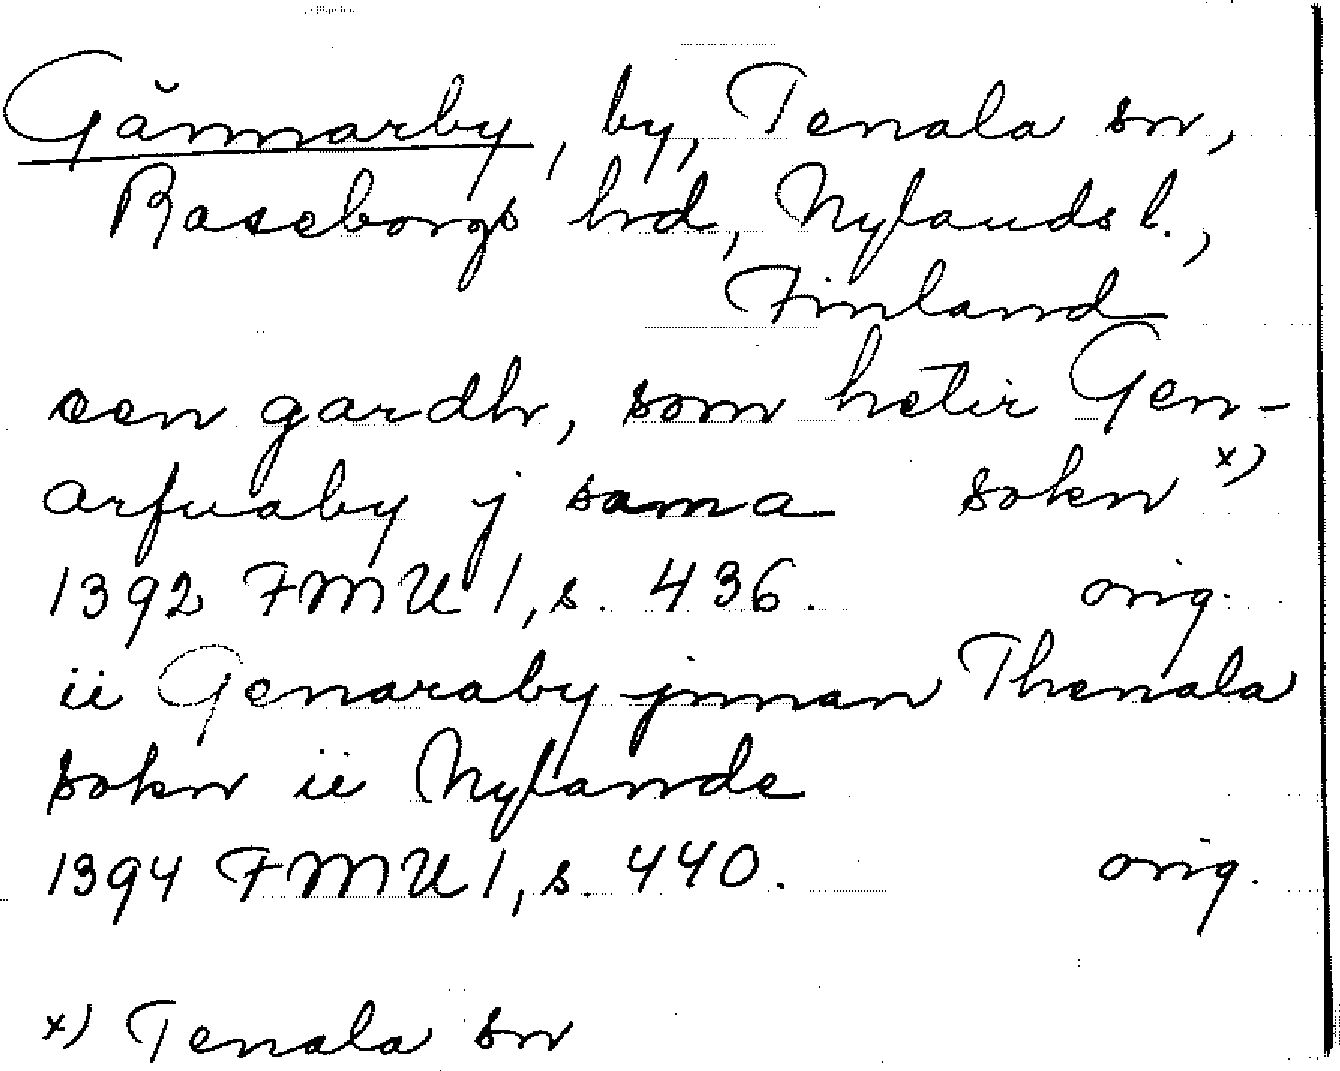 Gännarby, by, Tenala sn,
Raseborgs hrd, Nylands l.,
Finland
een gardh, som hetir Gen-
arfuaby j sama sokn x)
1392 FMU 1, s. 436. orig.
ii Genaraby jnnan Thenala
sokn ii Nylande
1394 FMU 1, s. 440. orig.
x) Tenala sn